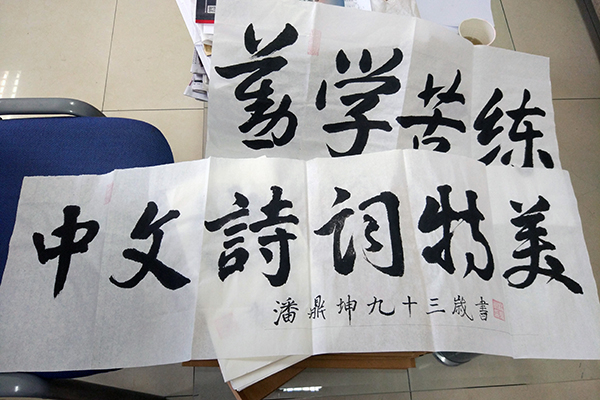 勤学苦练
中文詩词特美
潘鼎坤九十三歲書